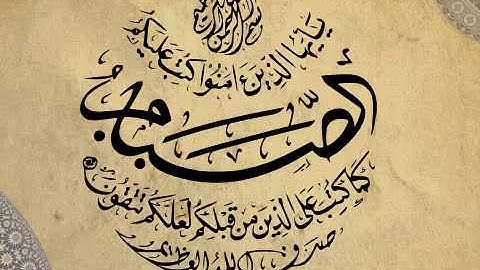 بسم الله الرحمن الرحيم
يا أيها الذين ءامنوا كتب عليكم
الصيام
كما كتب على الذين من قبلكم لعلكم تتقون
صدق الله العظيم